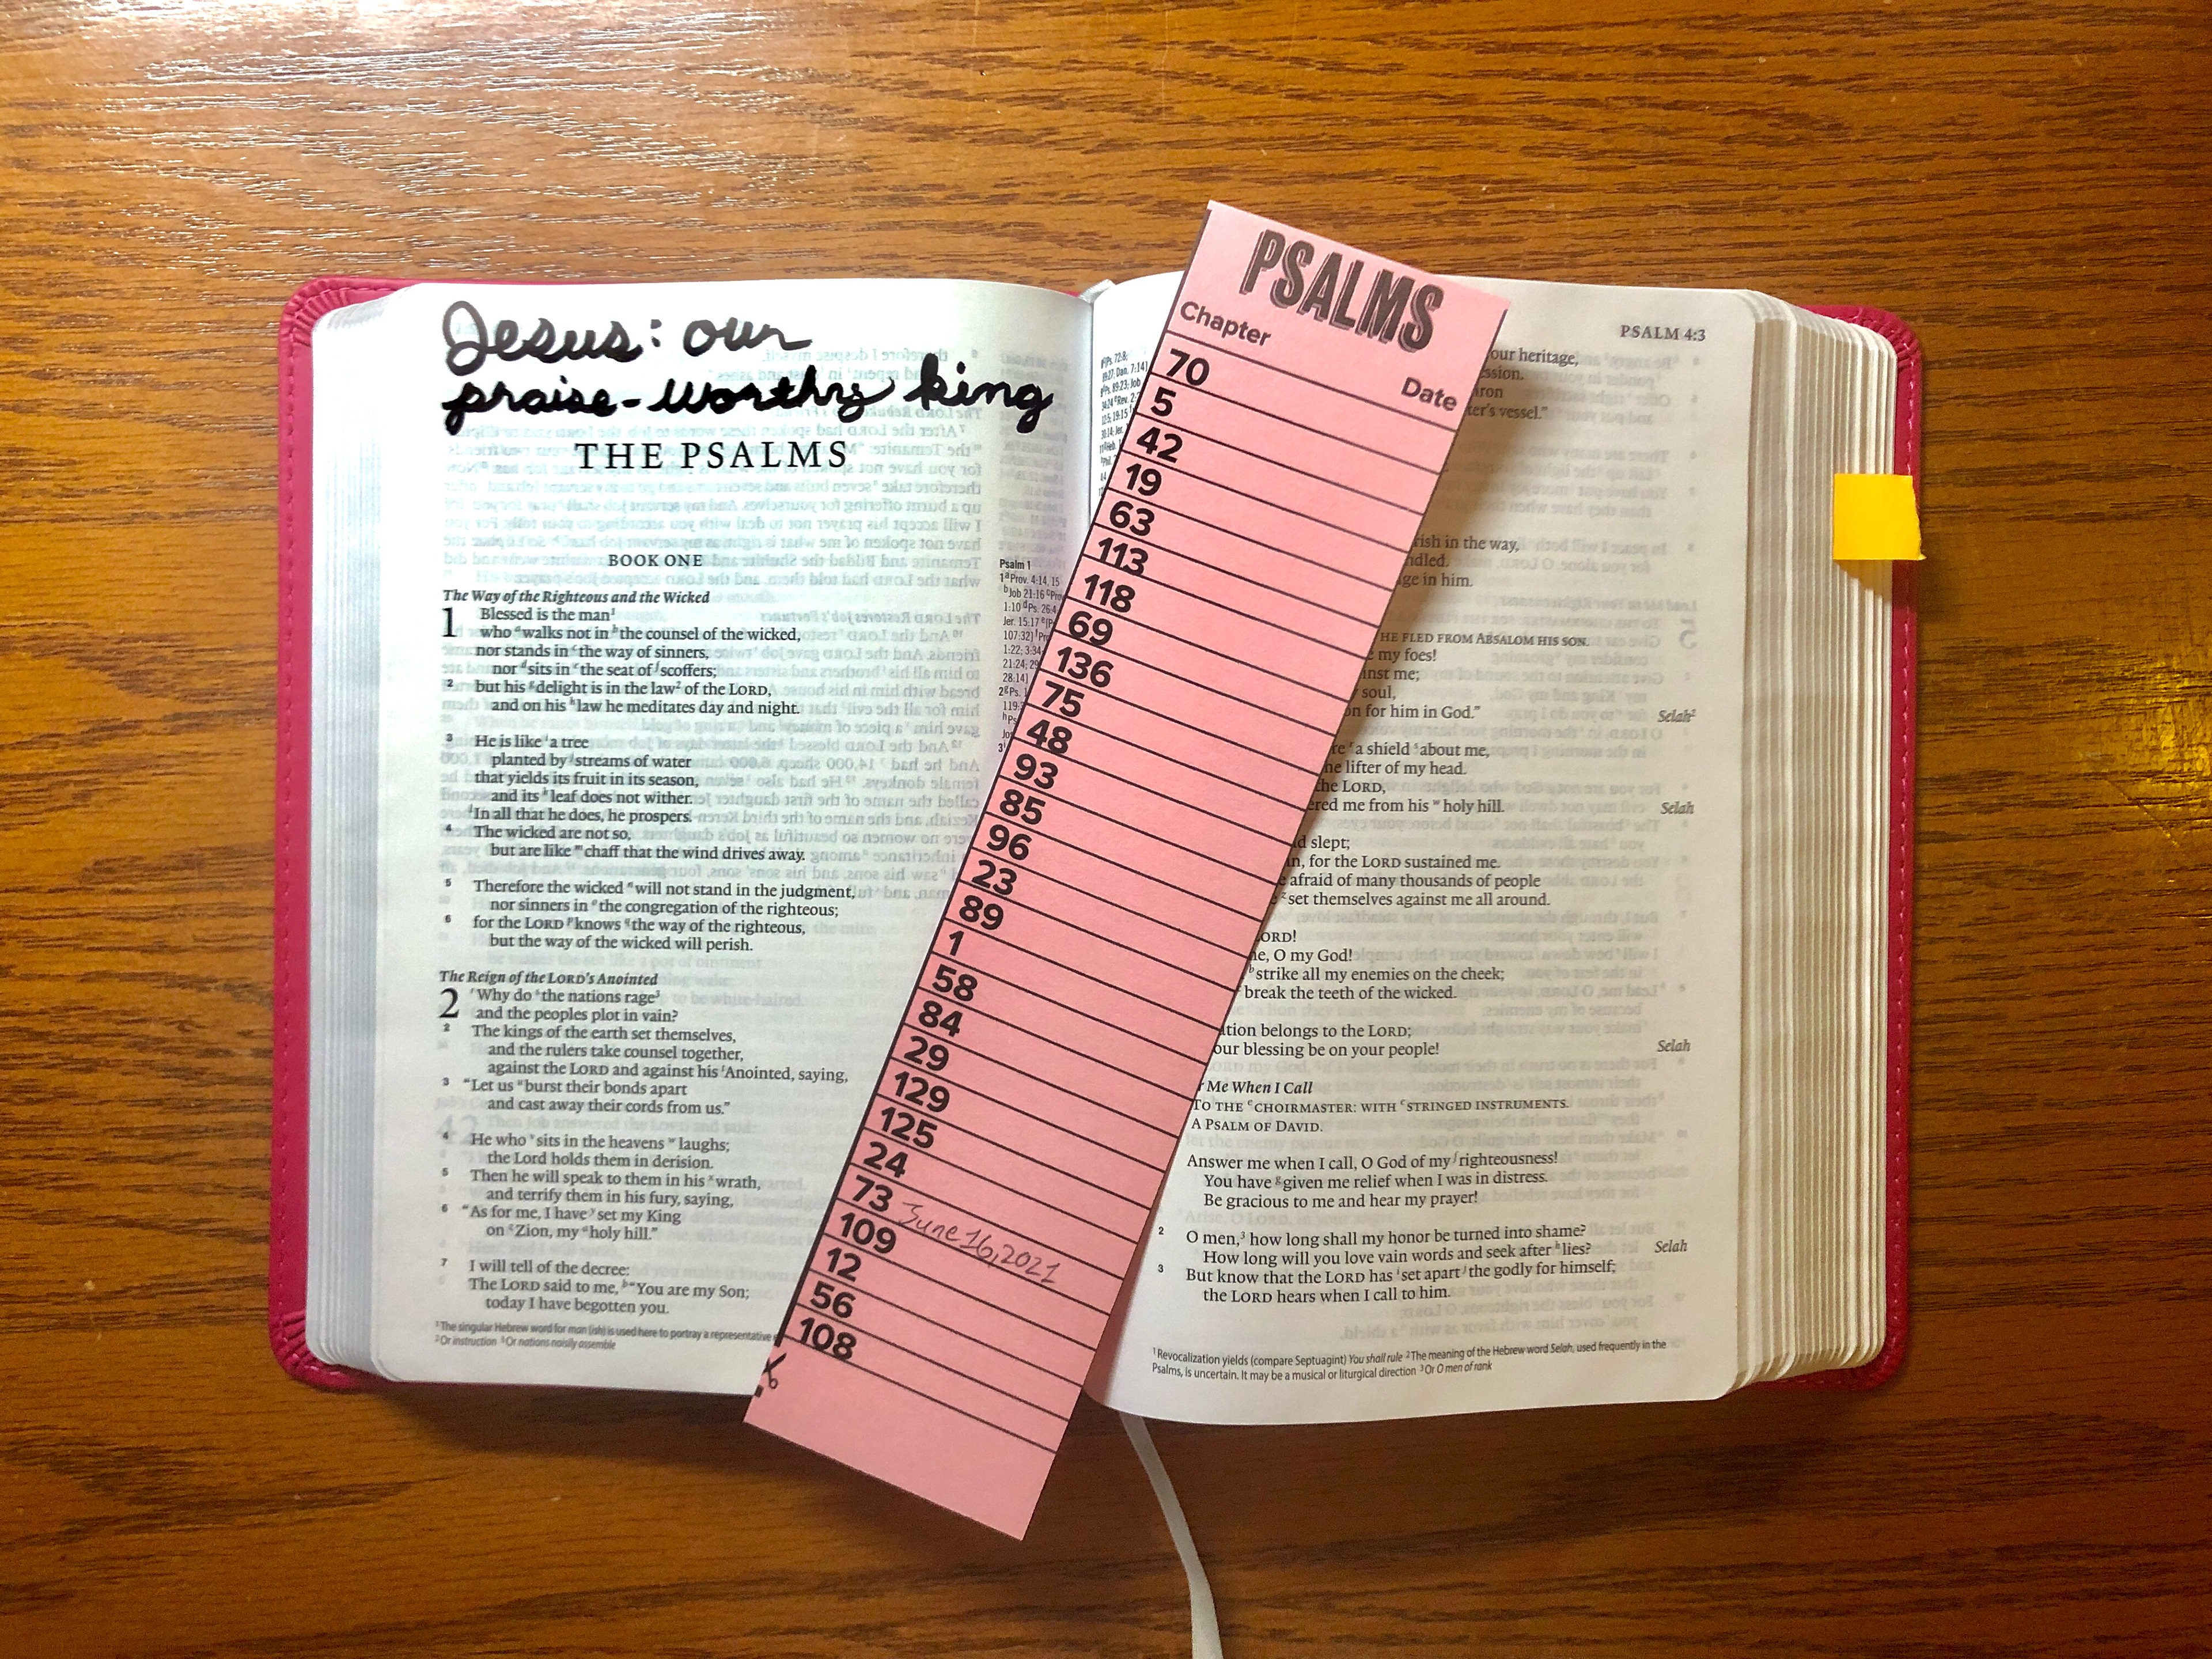 Jesus: our
praise-worthy king
THE PSALMS
BOOK ONE
The Way of the Righteous and the Wicked
1 Blessed is the man¹
who ᵃwalks not in ᵇthe counsel of the wicked,
nor stands in ᶜthe way of sinners,
nor ᵈsits in ᵉthe seat of ᶠscoffers;
2 but his ᵍdelight is in the law² of the LORD,
and on his ʰlaw he meditates day and night.
3 He is like ⁱa tree
planted by ʲstreams of water
that yields its fruit in its season,
and its ᵏleaf does not wither.
ˡIn all that he does, he prospers.
4 The wicked are not so,
but are like ᵐchaff that the wind drives away.
5 Therefore the wicked ⁿwill not stand in the judgment,
nor sinners in ᵒthe congregation of the righteous;
6 for the LORD ᵖknows ᑫthe way of the righteous,
but the way of the wicked will perish.
The Reign of the LORD's Anointed
2 ʳWhy do ˢthe nations rage³
and the peoples plot in vain?
2 The kings of the earth set themselves,
and the rulers take counsel together,
against the LORD and against his ᵗAnointed, saying,
3 “Let us ᵘburst their bonds apart
and cast away their cords from us.”
4 He who ᵛsits in the heavens ʷlaughs;
the Lord holds them in derision.
5 Then he will speak to them in his ˣwrath,
and terrify them in his fury, saying,
6 “As for me, I have ʸset my King
on ᶻZion, my ᵃholy hill.”
7 I will tell of the decree:
The LORD said to me, ᵇ“You are my Son;
today I have begotten you.
¹The singular Hebrew word for man (ish) is used here to portray a representative
²Or instruction ³Or nations noisily assemble
Psalm 1
1ᵃProv. 4:14, 15
ᵇJob 21:16
1:10 ᵈPs. 26:4
Jer. 15:17
107:32]
1:22; 3:34
21:24; 29
28:14]
2ᵍPs. 1
119:
PSALMS
Chapter
Date
70
5
42
19
63
113
118
69
136
75
48
93
85
96
23
89
1
58
84
29
129
125
24
73 June 16, 2021
109
12
56
108
PSALM 4:3
our heritage,
ssion.
iron
ter's vessel.”
rish in the way,
ndled.
ge in him.
HE FLED FROM ABSALOM HIS SON.
my foes!
inst me;
soul,
on for him in God.” Selah²
re ʳa shield ˢabout me,
he lifter of my head.
the LORD,
ered me from his ʷholy hill. Selah
d slept;
n, for the LORD sustained me.
afraid of many thousands of people
set themselves against me all around.
ORD!
ne, O my God!
ᵇstrike all my enemies on the cheek;
break the teeth of the wicked.
tion belongs to the LORD;
our blessing be on your people! Selah
Me When I Call
TO THE ᵉCHOIRMASTER: WITH ᵉSTRINGED INSTRUMENTS.
A PSALM OF DAVID.
Answer me when I call, O God of my ᶠrighteousness!
You have ᵍgiven me relief when I was in distress.
Be gracious to me and hear my prayer!
2 O men,³ how long shall my honor be turned into shame?
How long will you love vain words and seek after ʰlies? Selah
3 But know that the LORD has ⁱset apart ʲthe godly for himself;
the LORD hears when I call to him.
¹Revocalization yields (compare Septuagint) You shall rule ²The meaning of the Hebrew word Selah, used frequently in the
Psalms, is uncertain. It may be a musical or liturgical direction ³Or O men of rank